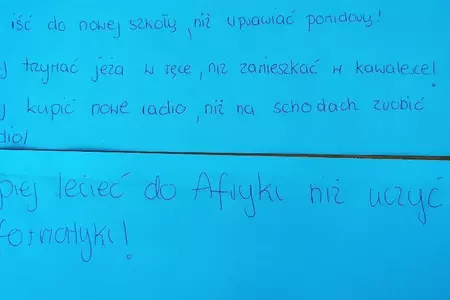 iść do nowej szkoły, niż uprawiać pomidory!
j trzymać jeża w ręce, niż zamieszkać w kawalerce!
j kupić nowe radio, niż na schodach zrobić
dio!
piej lecieć do Afryki niż uczyć
formatyki!